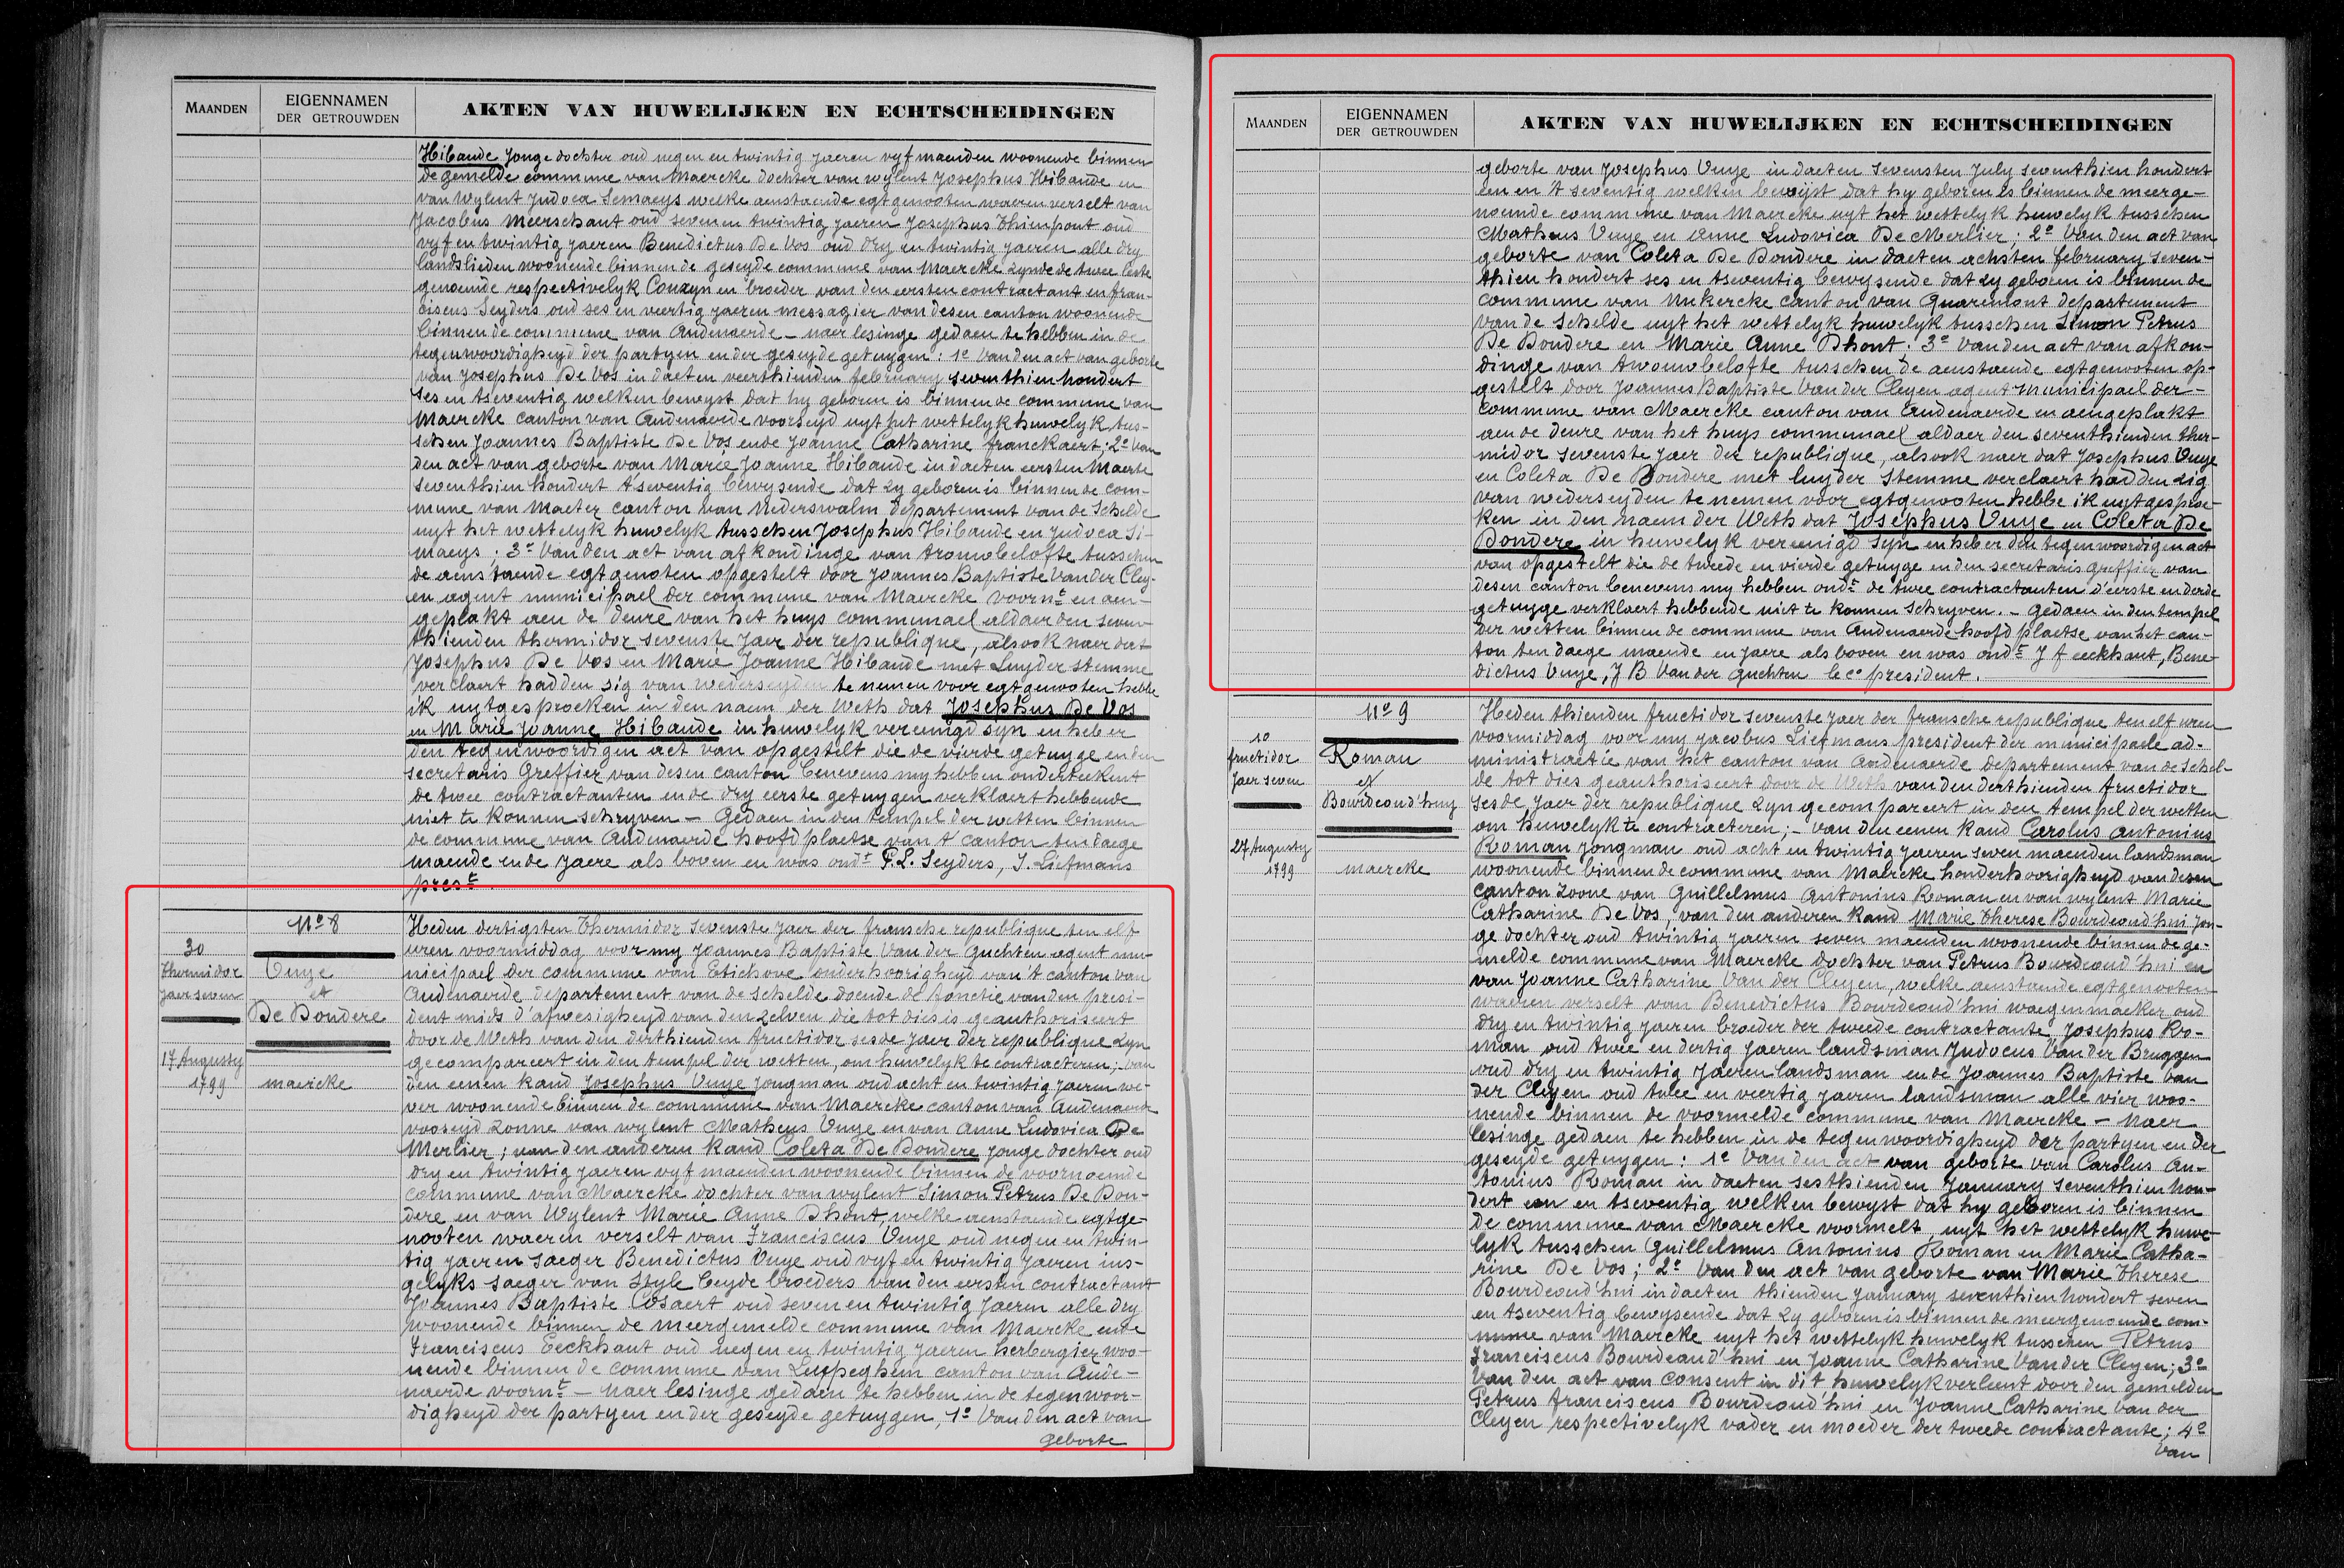 MAANDEN
EIGENNAMEN
DER GETROUWDEN
AKTEN VAN HUWELIJKEN EN ECHTSCHEIDINGEN
Hibaude Jonge dochter oud negen en twintig jaeren vyf maenden woonende binnen
de gemelde commune van Maercke dochter van wylent Josephus Hibaude en
van wylent Judoca Semaeys welke aenstaende egtgenooten waeren verselt van
Jacobus Meerschaut oud seven en twintig jaeren Josephus Thienpont oud
vyf en twintig jaeren Benedictus De Vos oud dry en twintig jaeren alle dry
landslieden woonende binnen de geseyde commune van Maercke zynde de twee leste
genoemde respectivelyk Couzyn en broeder van den eersten contractant en fran-
ciscus Seyders oud ses en veertig jaeren messagier van desen canton woonende
binnen de commune van Audenaerde – naer lesinge gedaen te hebben in de
tegenwoordigheyd der partyen en der geseyde getuygen : 1e Van den act van geborte
van Josephus De Vos in daeten veerthienden february seventhien hondert
ses en tseventig welken bewyst dat hy geboren is binnen de commune van
Maercke canton van Audenaerde voorseyd uyt het wettelyk huwelyk tus-
schen Joannes Baptiste De Vos ende Joanne Catharine franckaert ; 2e Van
den act van geborte van Marie Joanne Hibaude in daeten eersten Maerte
seventhien hondert t'seventig bewysende dat zy geboren is binnen de com-
mune van Maeter canton van Nederswalm departement van de Schelde
uyt het wettelyk huwelyk tusschen Josephus Hibaude en Judoca Si-
maeys . 3e Van den act van afkondinge van trouwbelofte tusschen
de aenstaende egtgenoten opgestelt door Joannes Baptiste Van der Cley-
en agent municipael der commune van Maercke voornt en aen-
geplakt aen de deure van het huys communael aldaer den seven-
thienden thermidor sevenste jaer der republique, alsook naer dat
Josephus De Vos en Marie Joanne Hibaude met Luyder stemme
verclaert hadden sig van wederseyden te nemen voor egtgenooten hebbe
ik uytgesproeken in den naem der Weth dat Josephus De Vos
en Marie Joanne Hibaude in huwelyk vereenigd syn en heb er
den tegenwoordigen act van opgestelt die de vierde getuyge en den
secretaris Greffier van desen canton benevens my hebben onderteekent
de twee contractanten en de dry eerste getuygen verklaert hebbende
niet te konnen schryven – Gedaen in den tempel der wetten binnen
de commune van Audenaerde hoofdplaetse van t' canton ten daege
maende en de Jaere als boven en was ondt F.L. Seyders, J. Liefmans
prest .
No 8
30
Thermidor
Jaer seven
Vuye
et
De Dondere
17 Augusty
1799
maercke
Heden dertigsten Thermidor sevenste Jaer der fransche republique ten elf
uren voormiddag voor my Joannes Baptiste Van der Guchten agent mu-
nicipael der commune van Etichove onderhoorigheyd van 't canton van
Audenaerde departement van de Schelde doende de fonctie van den presi-
dent mids d'afwesigheyd van den zelven die tot dies is geauthoriseert
door de Weth van den derthienden fructidor sesde Jaer der republique zyn
gecompareert in den tempel der wetten, om huwelyk te contracteren ; van
den eenen kand Josephus Vuye jongman oud acht en twintig jaeren we-
ver woonende binnen de commune van Maercke canton van Audenaerde
vooseyd zonne van wylent Matheus Vuye en van Anne Ludovica De
Merlier ; van den anderen kand Coleta De Dondere Jonge dochter oud
dry en twintig jaeren vyf maenden woonende binnen de voornoemde
commune van Maercke dochter van wylent Simon Petrus De Don-
dere en van Wylent Marie Anne Dhont, welke aenstaende egtge-
nooten waeren verselt van Franciscus Vuye oud negen en twin-
tig jaeren saeger Benedictus Vuye oud vyf en twintig Jaeren ins-
gelyks saeger van style beyde broeders van den eersten contractant
Joannes Baptiste Cosaert oud seven en twintig Jaeren alle dry
woonende binnen de meergemelde commune van Maercke ende
Franciscus Eeckhaut oud negen en twintig jaeren herbergier woo-
nende binnen de commune van Leupeghem canton van Aude-
naerde voornt – naer lesinge gedaen te hebben in de tegenwoor-
digheyd der partyen en der geseyde getuygen, 1e Van den act van
geborte
MAANDEN
EIGENNAMEN
DER GETROUWDEN
AKTEN VAN HUWELIJKEN EN ECHTSCHEIDINGEN
geborte van Josephus Vuye in daeten sevensten July seventhien hondert
een en t seventig welken bewyst dat hy geboren is binnen de meerge-
noemde commune van Maercke uyt het wettelyk huwelyk tusschen
Matheus Vuye en Anne Ludovica De Merlier ; 2e Van den act van
geborte van Coleta De Dondere in daeten achsten february seven-
thien hondert ses en tseventig bewysende dat zy geboren is binnen de
commune van Nukercke canton van Quaremont departement
van de Schelde uyt het wettelyk huwelyk tusschen Simon Petrus
De Dondere en Marie Anne Dhont . 3e Van den act van afkon-
dinge van trouwbelofte tusschen de aenstaende egtgenooten op-
gestelt door Joannes Baptiste Van der Cleyen agent municipael der –
commune van Maercke canton van Audenaerde en aengeplakt
aen de deure van het huys communael aldaer den seventhienden ther-
midor sevenste jaer der republique, alsook naer dat Josephus Vuye
en Coleta De Dondere met luyder stemme verclaert hadden zig
van wederseyden te nemen voor egtgenooten hebbe ik uytgesproe-
ken in den naem der Weth dat Josephus Vuye en Coleta De
Dondere in huwelyk vereenigd syn en heb er den tegenwoordigen act
van opgestelt die de tweede en vierde getuyge en den secretaris greffier van
desen canton benevens my hebben ondt de twee contractanten d'eerste en derde
getuyge verklaert hebbende niet te konnen schryven . – Gedaen in den tempel
der wetten binnen de commune van Audenaerde hoofd plaetse van het can-
ton ten daege maende en jaere als boven en was ondt J f eeckhaut, Bene-
dictus Vuye, J B Van der Guchten loco president .
No 9
10
fructidor
Jaer seven
Roman
et
Bourdeaud'huy
27 Augusty
1799
maercke
Heden thienden fructidor sevenste jaer der fransche republique ten elf uren
voormiddag voor my Jacobus Liefmans president der municipaele ad-
ministractie van het canton van Audenaerde departement van de Schel-
de tot dies geauthoriseert door de Weth van den derthienden fructidor
sesde jaer der republique zyn gecompareert in den tempel der wetten
om huwelyk te contracteren ; – van den eenen kand Carolus Antonius
Roman jongman oud acht en twintig jaeren seven maenden landsman
woonende binnen de commune van Maercke honderhoorigheyd van desen
canton zoone van Guillelmus Antonius Roman en van wylent Marie
Catharine De Vos, van den anderen kand Marie Therese Bourdeaud'hui Jon-
ge dochter oud twintig jaeren seven maenden woonende binnen de ge-
melde commune van Maercke dochter van Petrus Bourdeaud'hui en
van Joanne Catharine Van der Cleyen, welke aenstaende egtgenooten
waeren verselt van Benedictus Bourdeaud'hui waegenmaeker oud
dry en twintig jaeren broeder der tweede contractante Josephus Ro-
man oud twee en dertig jaeren landsman Judocus Van der Bruggen
oud dry en twintig jaeren landsman ende Joannes Baptiste Van
der Cleyen oud twee en veertig jaeren landsman alle vier woo-
nende binnen de voormelde commune van Maercke – naer
lesinge gedaen te hebben in de tegenwoordigheyd der partyen en der
geseyde getuygen : 1e Van den act van geborte van Carolus An-
tonius Roman in daeten sesthienden January seventhien hon-
dert een en tseventig welken bewyst dat hy geboren is binnen
de commune van Maercke voormelt, uyt het wettelyk huwe-
lyk tusschen Guillelmus Antonius Roman en Marie Catha-
rine De Vos ; 2e Van den act van geborte van Marie Therese
Bourdeaud'hui in daeten thienden January seventhien hondert seven
en tseventig bewysende dat zy geboren is binnen de meergenoemde com-
mune van Maercke uyt het wettelyk huwelyk tusschen Petrus
Franciscus Bourdeaud'hui en Joanne Catharine Van der Cleyen ; 3e
Van den act van Consent in dit huwelyk verleent door den gemelden
Petrus franciscus Bourdeaud'hui en Joanne Catharine Van der
Cleyen respectivelyk vader en moeder der tweede contractante ; 4e
Van